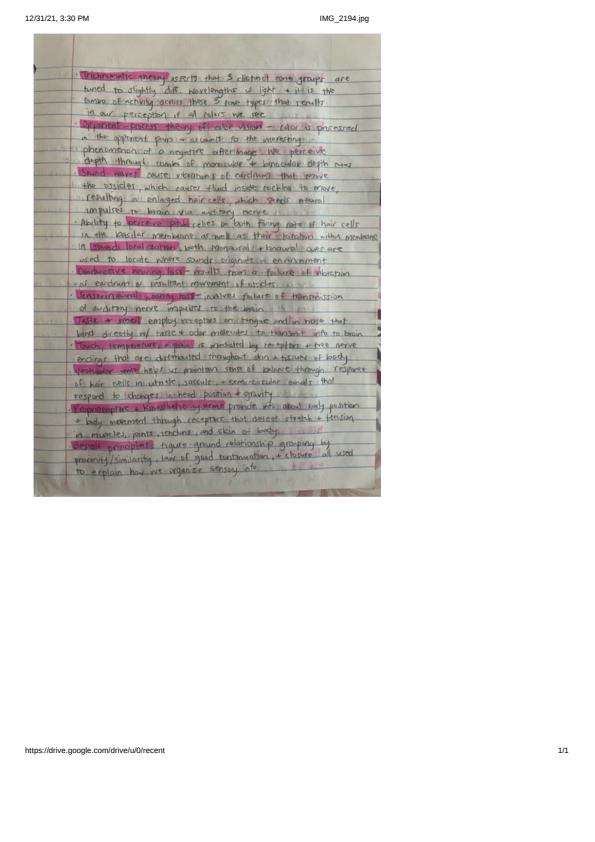 12/31/21, 3:30 PM IMG_2194.jpg
· Trichromatic theory asserts that 3 distinct cone groups are
tuned to slightly diff. wavelengths of light + it is the
of activity across these 3 cone types that results
in our perception of all colors we see
· Opponent-process theory of color vision - color is processed
in the opponent pairs + account for the interesting
phenomenon of a negative afterimage. We perceive
depth through combo of monocular + binocular depth cues
· Sound waves cause vibrations of eardrums that move
the ossicles, which causes fluid inside cochlea to move,
resulting in enlarged hair cells, which sends neural
impulses to brain via auditory nerve
· Ability to perceive pitch relies on both firing rate of hair cells
in the basilar membrane as well as their location within membrane
· In sound localization, both monaural + binaural cues are
used to locate where sounds originate in environment
· Conductive hearing loss - results from a failure of vibration
of eardrum or resultant movement of ossicles
· Sensorineural hearing loss - involves failure of transmission
of auditory nerve impulses to the brain
· Taste + smell employ receptors on tongue and in nose that
bind directly w/ taste + odor molecules to transmit info to brain
· Touch, temperature + pain is mediated by receptors + free nerve
endings that are distributed throughout skin + tissues of body
· Vestibular sense helps us maintain sense of balance through response
of hair cells in utricle, saccule, + semi-circular canals that
respond to changes in head position + gravity
· Proprioceptive + kinesthetic systems provide info about body position
+ body movement through receptors that detect stretch + tension
in muscles, joints, tendons, and skin of body.
· Gestalt principles figure-ground relationship, grouping by
proximity/similarity, law of good continuation, + closure all used
to explain how we organize sensory info
https://drive.google.com/drive/u/0/recent 1/1